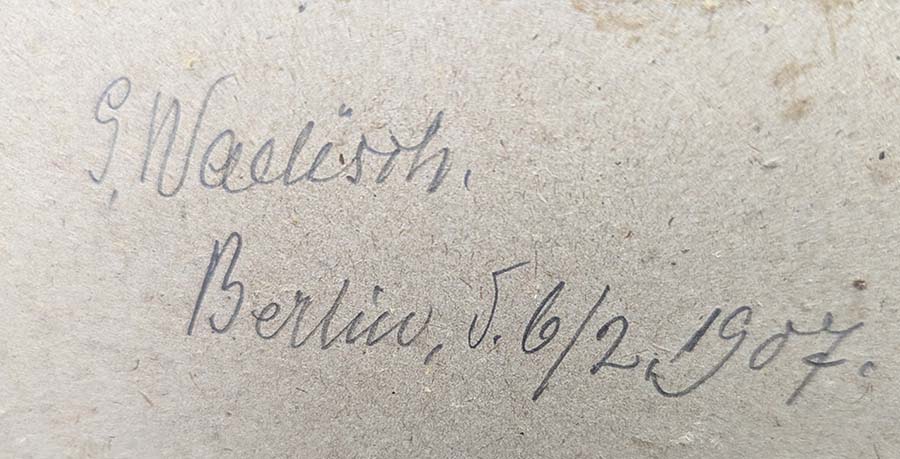 G. Waelisch.
Berlin, d. 6/2. 1907.